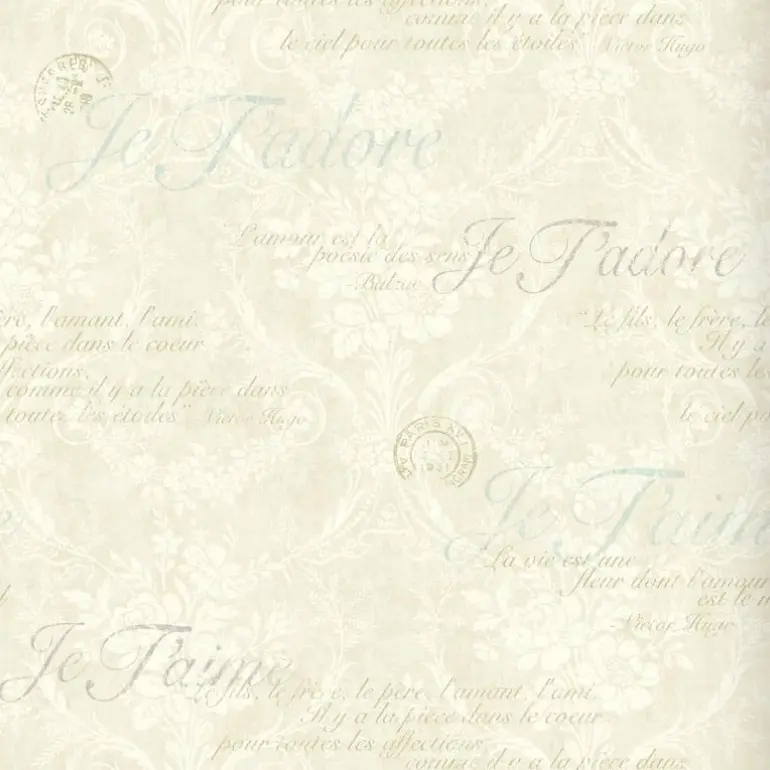 pour toutes les affections,
comme il y a la pièce dans
le ciel pour toutes les étoiles" Victor Hugo
Je T'adore
L'amour est la
poésie des sens
-Balzac
Je T'adore
ère, l'amant, l'ami.
pièce dans le coeur
ffections,
comme il y a la pièce dans
toutes les étoiles" - Victor Hugo
"Le fils, le frère, le
Il y a
pour toutes les
le ciel po
PARIS XVI
1931
Je T'aime
La vie est une
fleur dont l'amour
est le
-Victor Hugo
Je T'aime
Le fils, le frère, le père, l'amant, l'ami.
Il y a la pièce dans le coeur
pour toutes les affections,
comme il y a la pièce dans